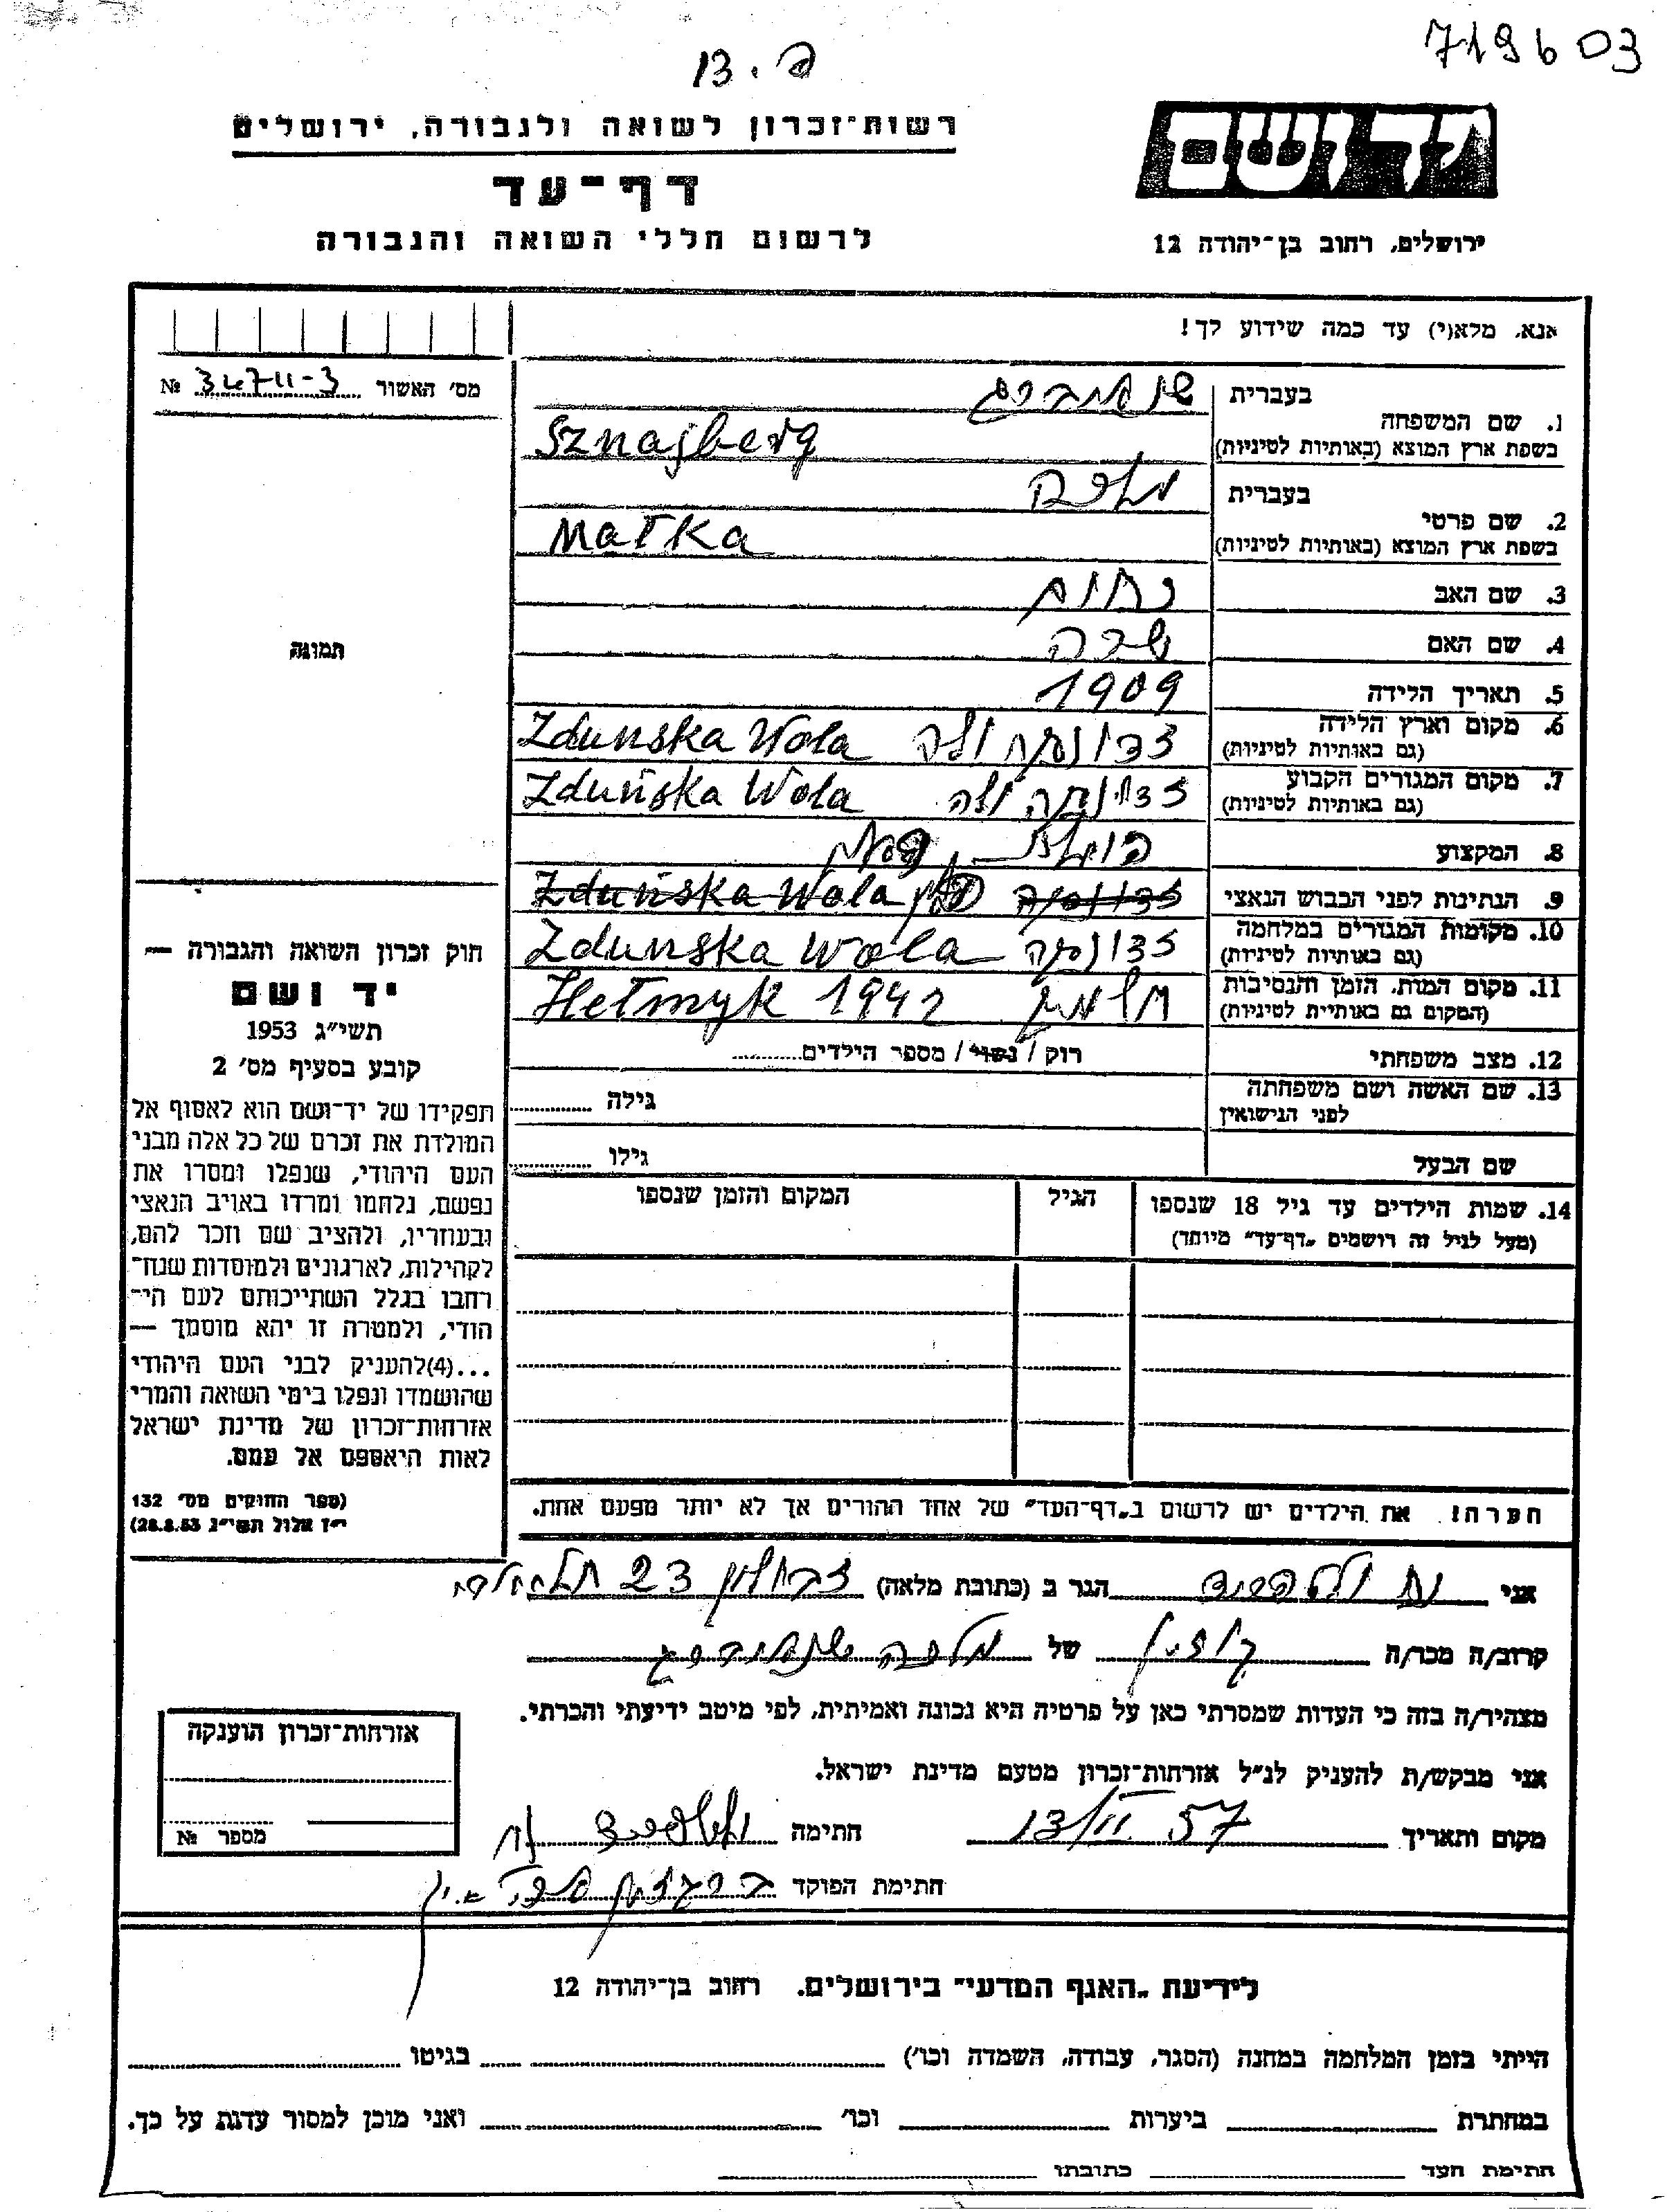 719603
ב. 13
יד ושם
ירושלים, רחוב בן־יהודה 12
רשות־זכרון לשואה ולגבורה, ירושלים
דף־עד
לרשום חללי השואה והגבורה
אנא, מלא(י) עד כמה שידוע לך!
מס׳ האשור 34711-3 №
תמונה
1. שם המשפחה בעברית שניידברג
בשפת ארץ המוצא (באותיות לטיניות) Sznajberg
2. שם פרטי בעברית מלכה
בשפת ארץ המוצא (באותיות לטיניות) Małka
3. שם האב נחום
4. שם האם שרה
5. תאריך הלידה 1909
6. מקום וארץ הלידה זדונסקה וולה Zdunska Wola
(גם באותיות לטיניות)
7. מקום המגורים הקבוע זדונסקה וולה Zduńska Wola
(גם באותיות לטיניות)
8. המקצוע
9. הנתינות לפני הכבוש הנאצי זדונסקה פולין Zduńska Wola
10. מקומות המגורים במלחמה זדונסקה Zdunska Wola
(גם באותיות לטיניות)
11. מקום המות, הזמן והנסיבות חלמנק Hełmyk 1942
(המקום גם באותיות לטיניות)
12. מצב משפחתי רוק / נשוי / מספר הילדים
13. שם האשה ושם משפחתה גילה
לפני הנישואין
שם הבעל גילו
14. שמות הילדים עד גיל 18 שנספו הגיל המקום והזמן שנספו
(מעל לגיל זה רושמים „דף־עד” מיוחד)
הערה! את הילדים יש לרשום ב„דף־העד” של אחד ההורים אך לא יותר מפעם אחת.
חוק זכרון השואה והגבורה —
יד ושם
תשי״ג 1953
קובע בסעיף מס׳ 2
תפקידו של יד־ושם הוא לאסוף אל
המולדת את זכרם של כל אלה מבני
העם היהודי, שנפלו ומסרו את
נפשם, נלחמו ומרדו באויב הנאצי
ובעוזריו, ולהציב שם וזכר להם,
לקהילות, לארגונים ולמוסדות שנח־
רבו בגלל השתייכותם לעם הי־
הודי, ולמטרה זו יהא מוסמך —
...(4) להעניק לבני העם היהודי
שהושמדו ונפלו בימי השואה והמרי
אזרחות־זכרון של מדינת ישראל
לאות היאספם אל עמם.
(ספר החוקים מס׳ 132
י״ז אלול תשי״ג 28.8.53)
אני הגר ב (כתובת מלאה) זבולון 23
קרוב/ה מכר/ה של מלכה שניידברג
מצהיר/ה בזה כי העדות שמסרתי כאן על פרטיה היא נכונה ואמיתית, לפי מיטב ידיעתי והכרתי.
אני מבקש/ת להעניק לנ״ל אזרחות־זכרון מטעם מדינת ישראל.
מקום ותאריך 13/II 57 חתימה
חתימת הפוקד
אזרחות־זכרון הוענקה
מספר №
לידיעת „האגף המדעי” בירושלים. רחוב בן־יהודה 12
הייתי בזמן המלחמה במחנה (הסגר, עבודה, השמדה וכו׳) בגיטו
במחתרת ביערות וכו׳ ואני מוכן למסור עדות על כך.
חתימת העד כתובתו